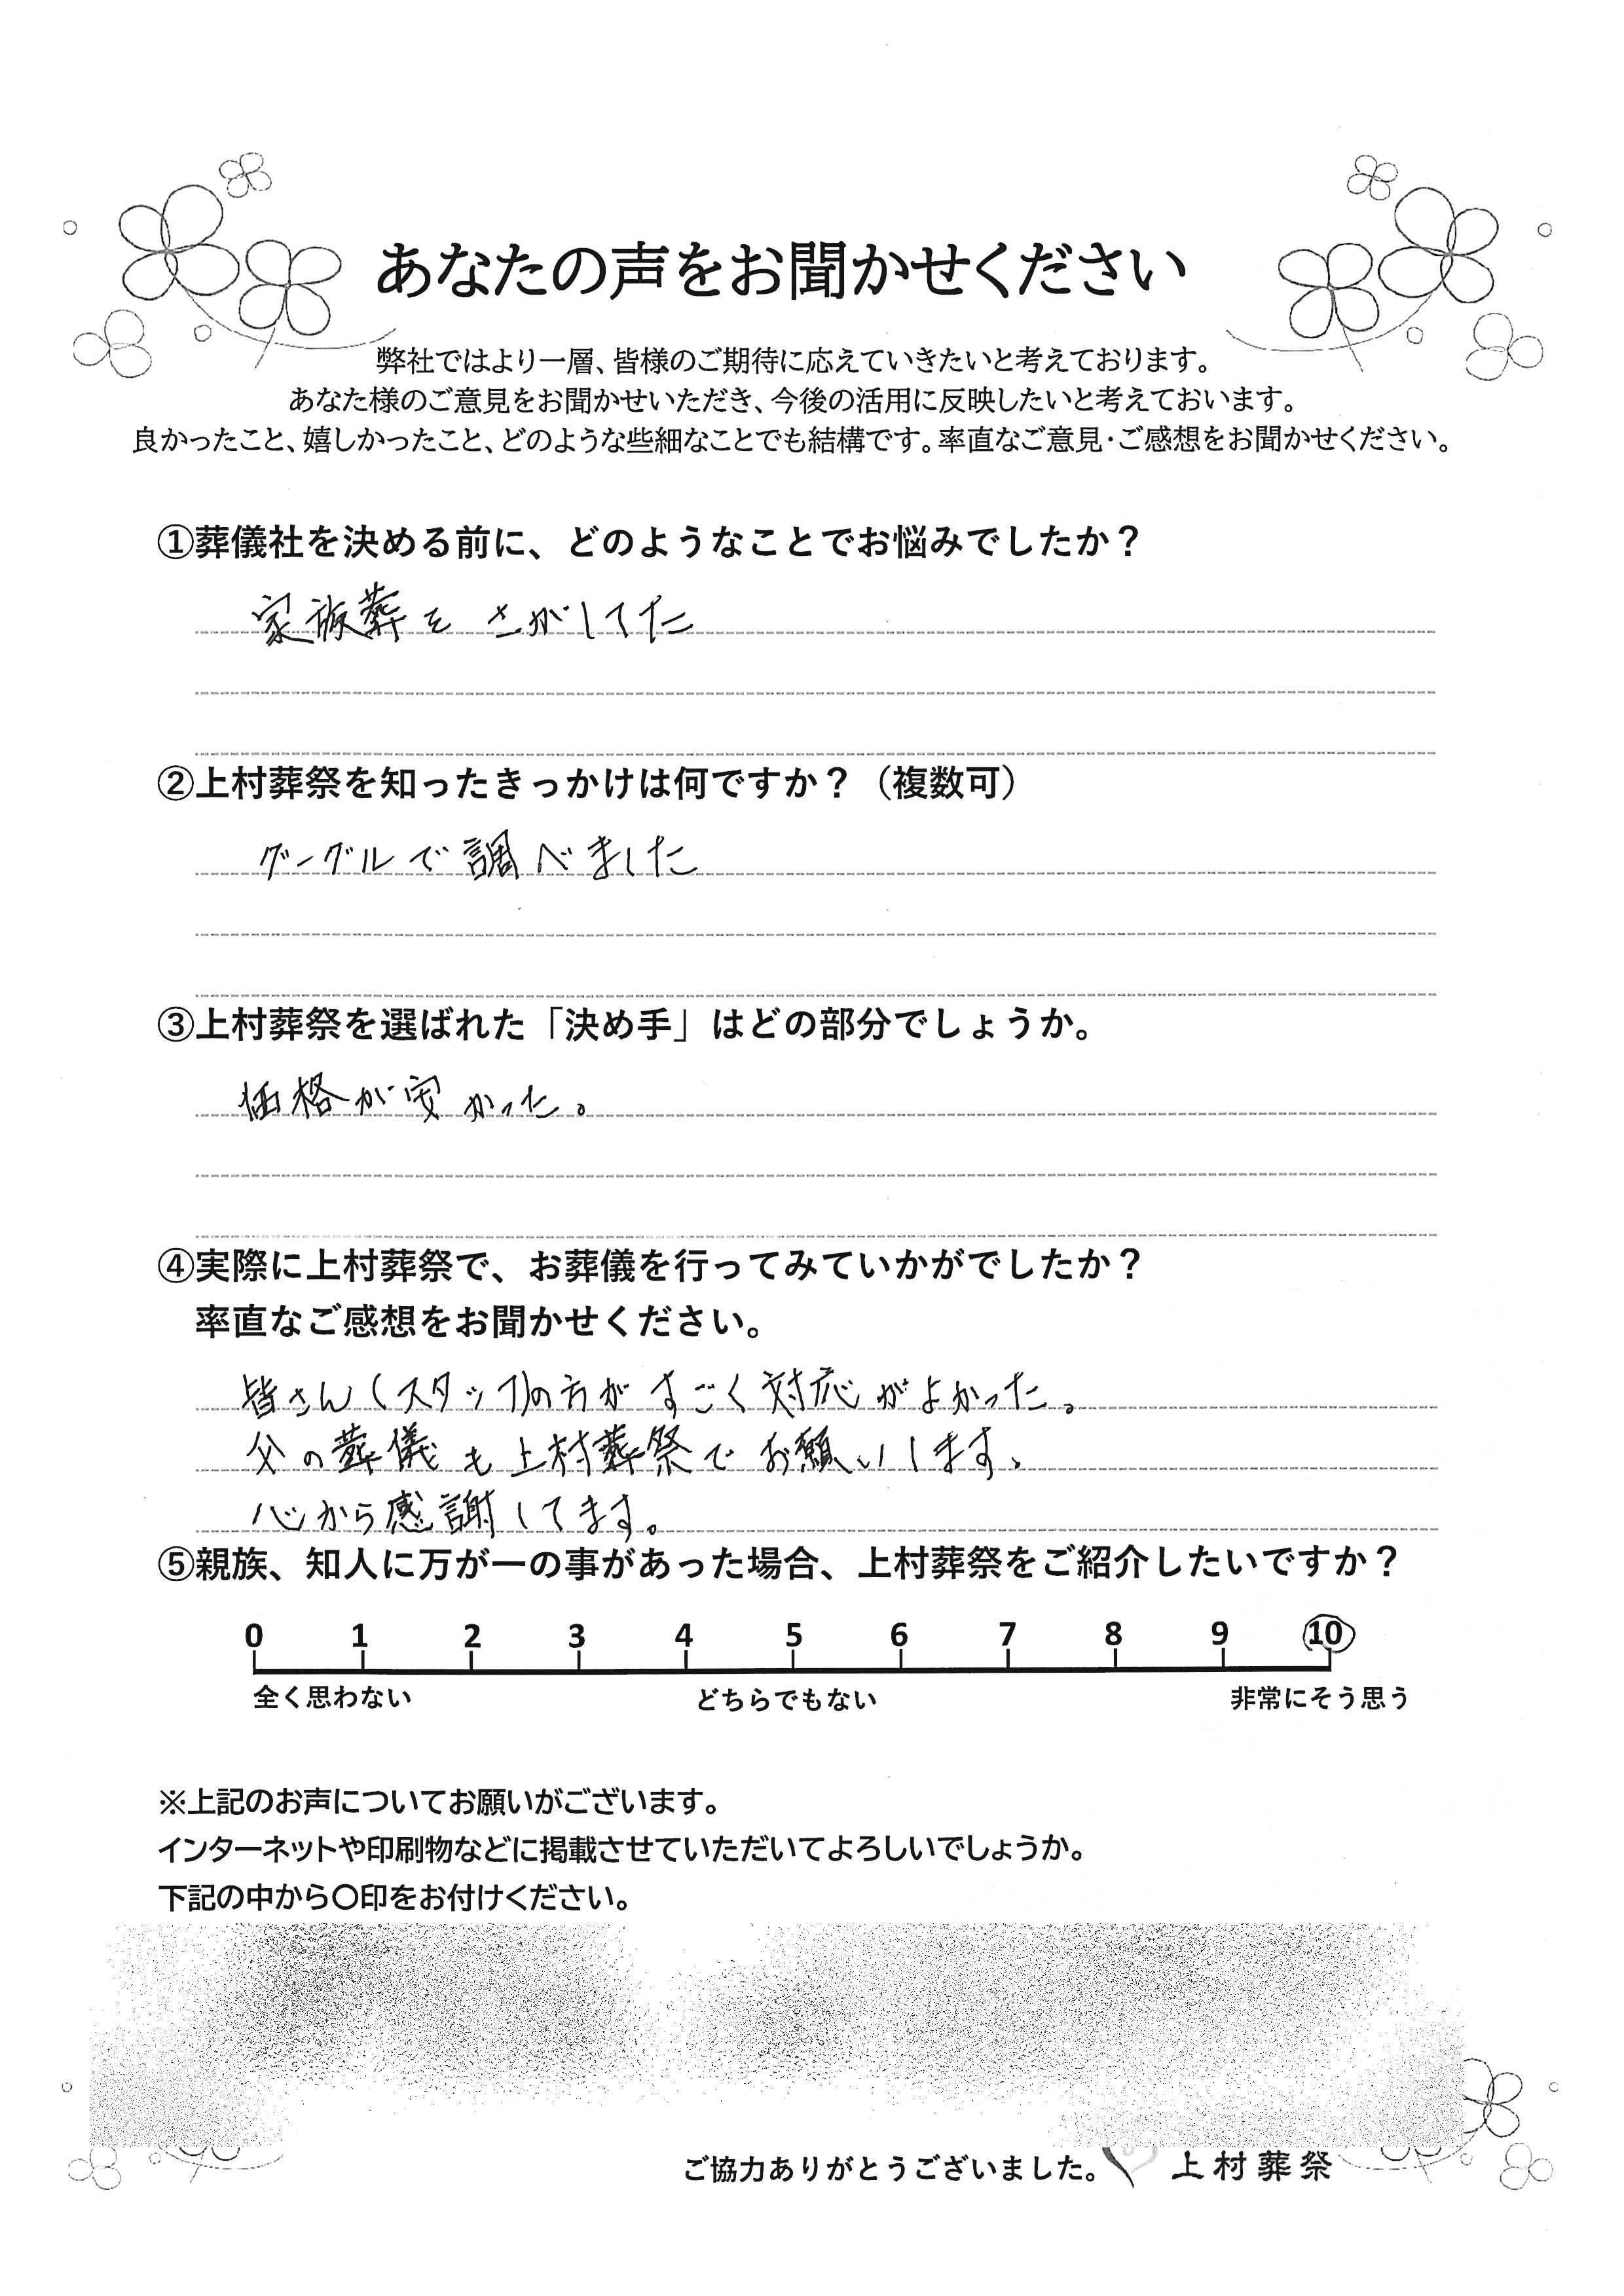 あなたの声をお聞かせください
弊社ではより一層、皆様のご期待に応えていきたいと考えております。
あなた様のご意見をお聞かせいただき、今後の活用に反映したいと考えておいます。
良かったこと、嬉しかったこと、どのような些細なことでも結構です。率直なご意見・ご感想をお聞かせください。
①葬儀社を決める前に、どのようなことでお悩みでしたか？
家族葬を さがしてた
②上村葬祭を知ったきっかけは何ですか？（複数可）
グーグルで調べました
③上村葬祭を選ばれた「決め手」はどの部分でしょうか。
価格が安かった。
④実際に上村葬祭で、お葬儀を行ってみていかがでしたか？
率直なご感想をお聞かせください。
皆さん(スタッフ)の方がすごく対応がよかった。
父の葬儀も上村葬祭でお願いします。
心から感謝してます。
⑤親族、知人に万が一の事があった場合、上村葬祭をご紹介したいですか？
0 1 2 3 4 5 6 7 8 9 10
全く思わない どちらでもない 非常にそう思う
※上記のお声についてお願いがございます。
インターネットや印刷物などに掲載させていただいてよろしいでしょうか。
下記の中から〇印をお付けください。
ご協力ありがとうございました。 上村葬祭